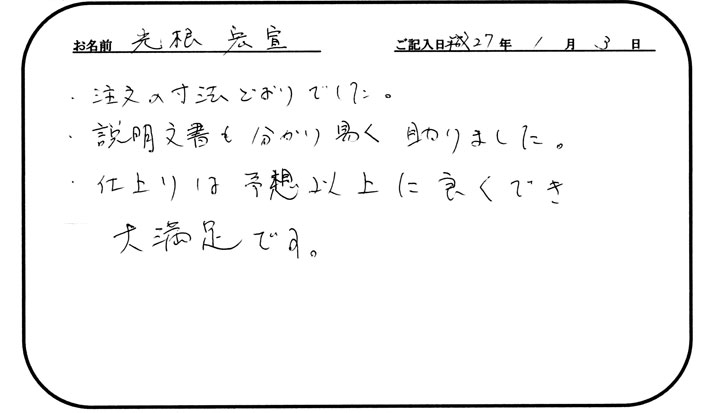 お名前 光根 兵宣 ご記入日 平成27年 1月 3日
・注文の寸法どおりでした。
・説明文書も分かり易く助りました。
・仕上りは予想以上に良くでき
大満足です。